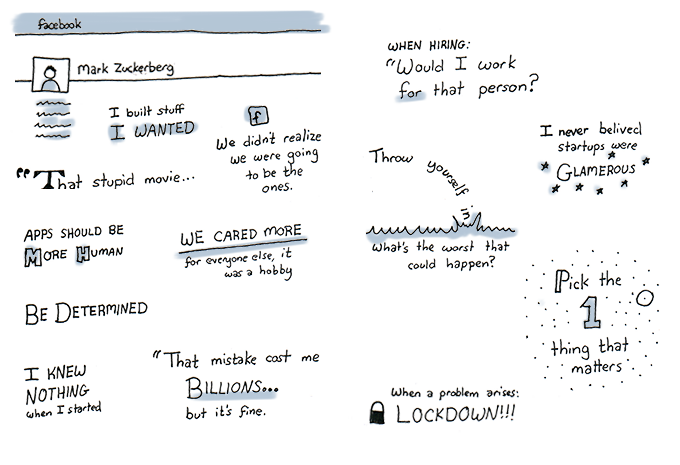 facebook
Mark Zuckerberg
I built stuff
I WANTED
f
We didn't realize
we were going
to be the
ones.
"That stupid movie...
APPS SHOULD BE
MORE HUMAN
WE CARED MORE
for everyone else, it
was a hobby
BE DETERMINED
I KNEW
NOTHING
when I started
"That mistake cost me
BILLIONS...
but it's fine.
WHEN HIRING:
"Would I work
for that person?
I never belived
startups were
GLAMEROUS
Throw yourself in
What's the worst that
could happen?
Pick the
1
thing that
matters
When a problem arises:
LOCKDOWN!!!